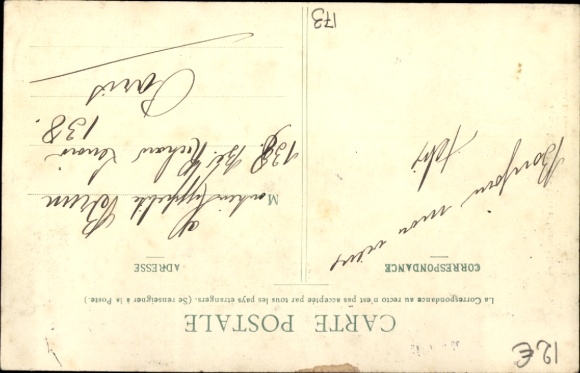 CARTE POSTALE
La Correspondance au recto n'est pas acceptée par tous les pays étrangers. (Se renseigner à la Poste.)
CORRESPONDANCE
Bonjour mon vieux
ADRESSE
Monsieur Hippolyte Brun
138 Bd. Richard Lenoir
138.
Paris
173
12€